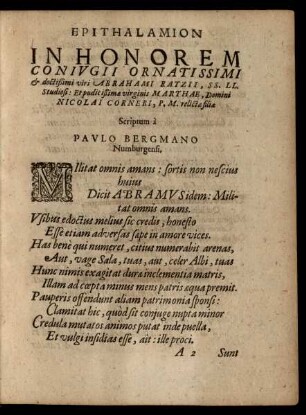 EPITHALAMION
IN HONOREM
CONIVGII ORNATISSIMI
& doctissimi viri ABRAHAMI RATZII, SS. LL.
Studiosi: Et pudicissimæ virginis MARTHAE, Domini
NICOLAI CORNERI, P. M. relictæ filiæ
Scriptum à
PAVLO BERGMANO
Numburgensi.
MIlitat omnis amans: sortis non nescius
huius
Dicit ABRAMVS idem: Mili-
tat omnis amans.
Vsibus edoctus melius sic credis, honesto
Esse etiam adversas sæpe in amore vices.
Has benè qui numeret, citius numerabit arenas,
Aut, vage Sala, tuas, aut, celer Albi, tuas
Hunc nimis exagitat dura inclementia matris,
Illam ad cæpta minus mens patris æqua premit.
Pauperis offendunt aliam patrimonia sponsi:
Clamitat hic, quod sit conjuge nupta minor
Credula mutatos animos putat inde puella,
Et vulgi insidias esse, ait: ille proci.
A 2 Sunt